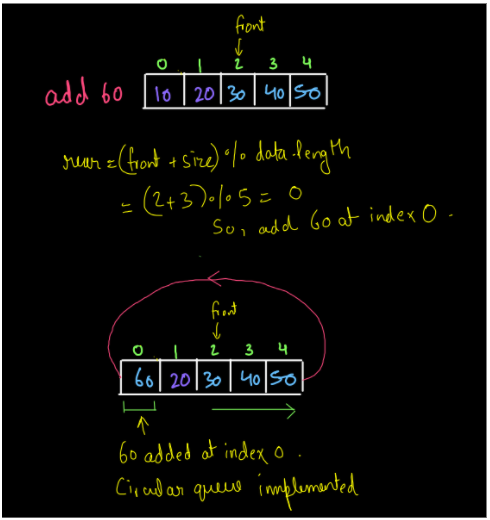 front
0 1 2 3 4
add 60 10 20 30 40 50
rear = (front + size) % data.length
= (2+3) % 5 = 0
So, add 60 at index 0.
front
0 1 2 3 4
60 20 30 40 50
60 added at index 0.
Circular queue implemented